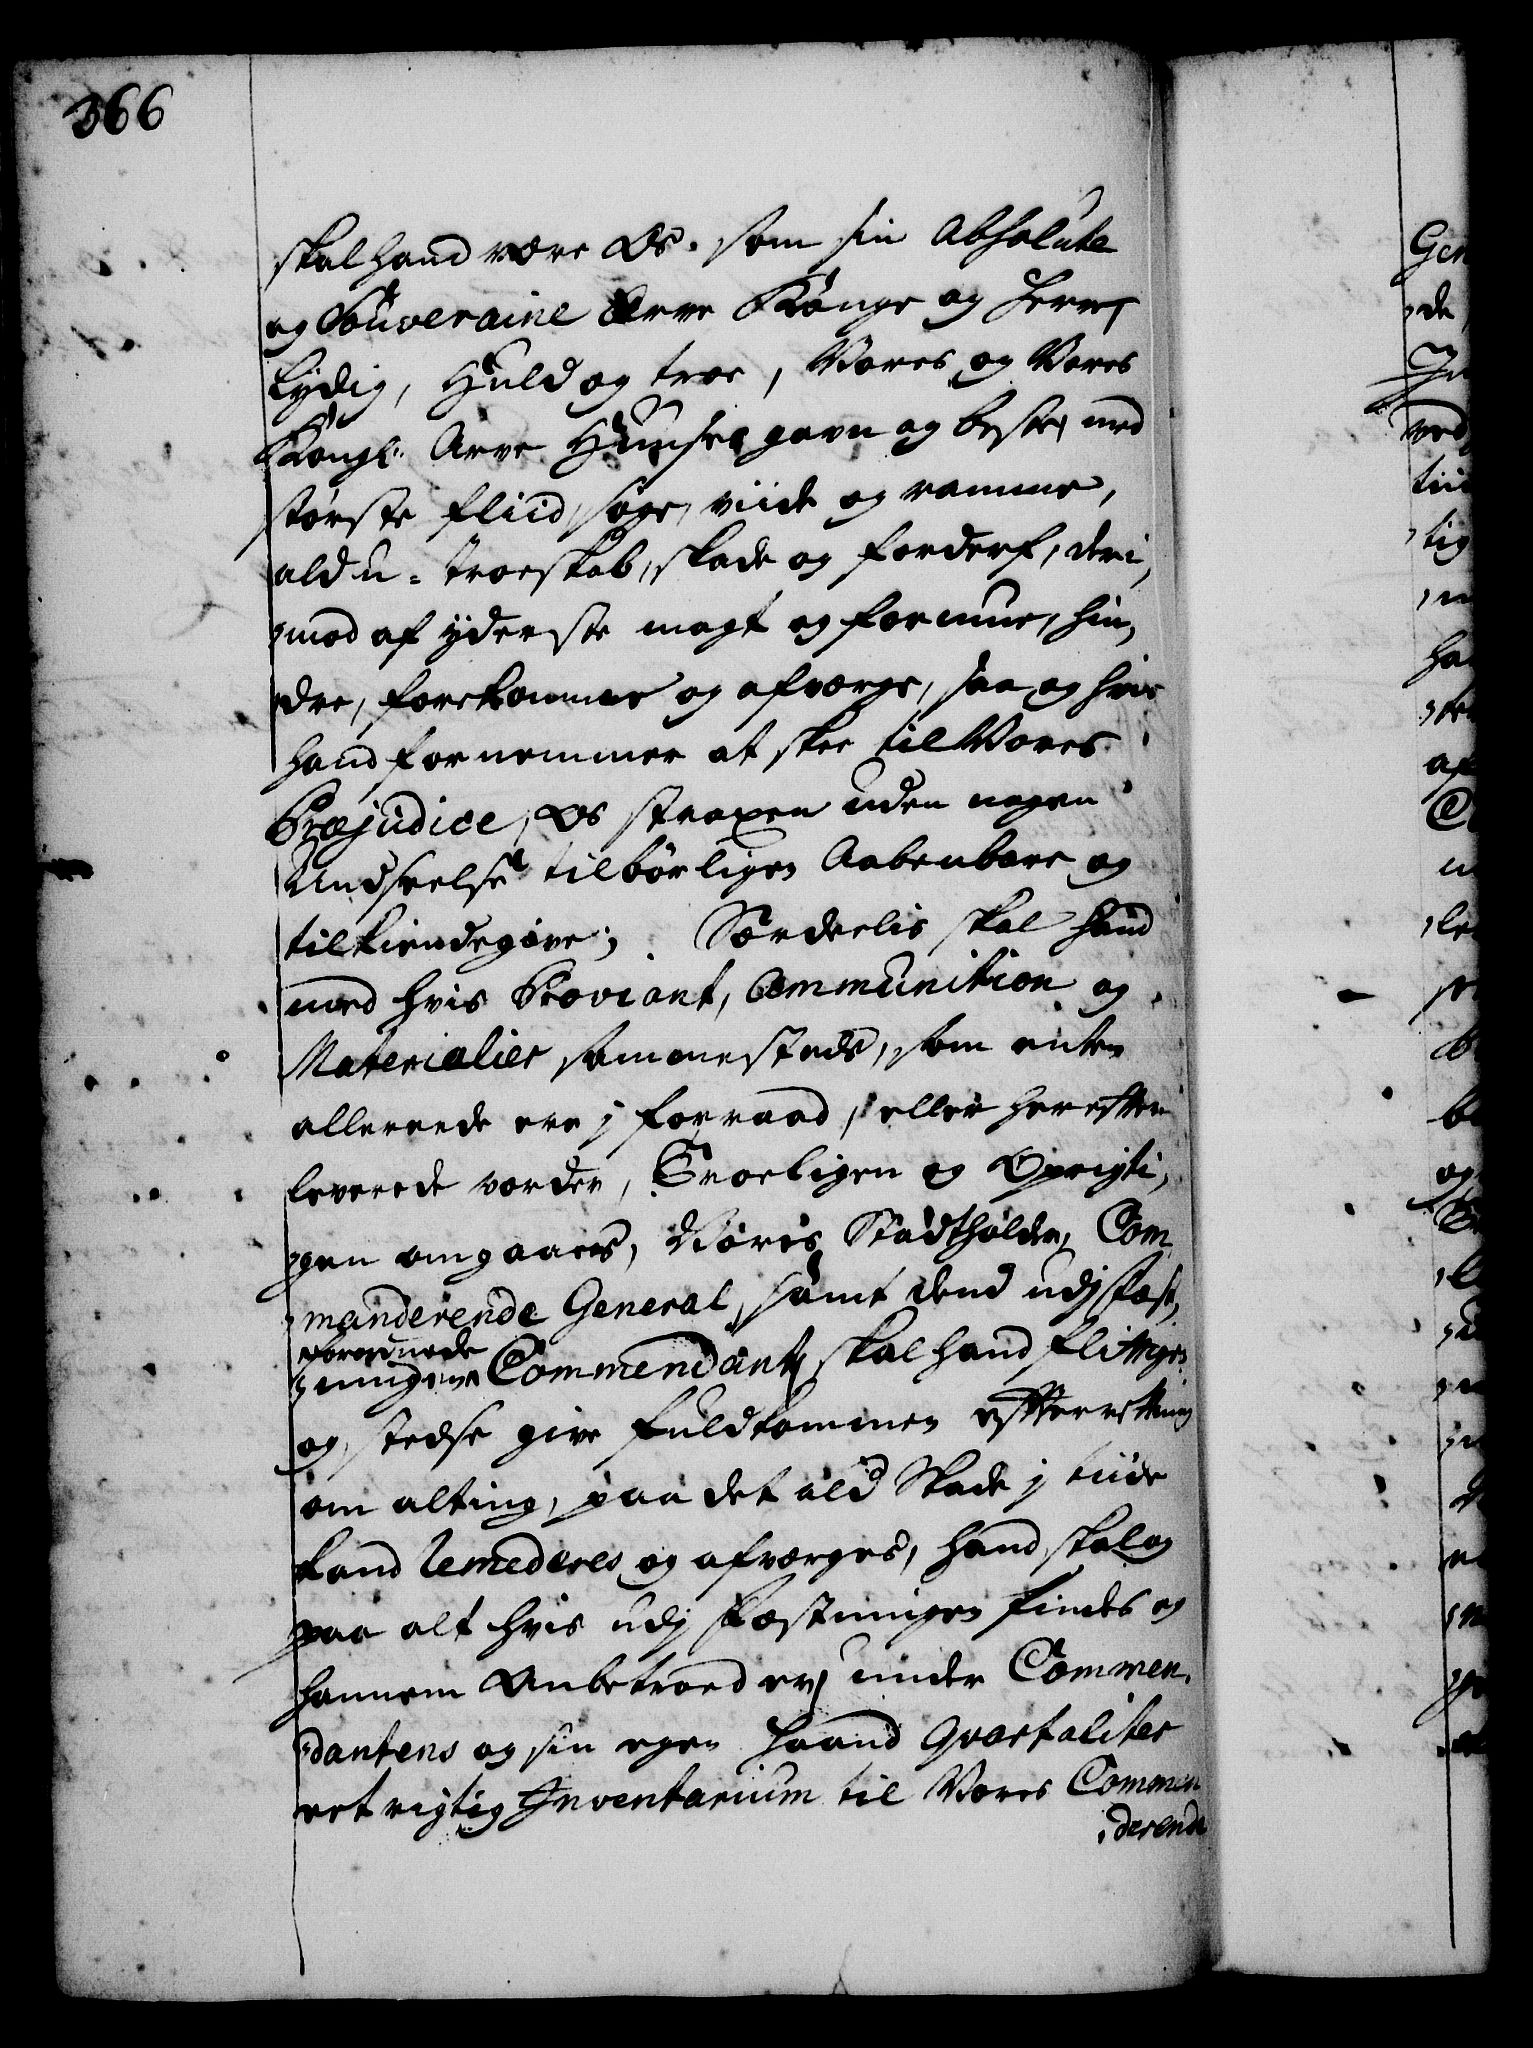 366
skal hand være Os som sin Absolute
og Souveraine Arve Konge og Herre,
lydig, Huld og troe, Vores og Vores
Kongl. Arve Huuses gavn og beste med
største fliid søge, viide og ramme,
ald u-troeskab, skade og forderf, deri,
mod af yderste magt og formue, hin,
dre, forekomme og afværge, saa og hvis
hand fornemmer at skee til Vores
Præjudice, Os straxen uden nogen
Undseelse tilbørligen Aabenbare og
tilkiendegive; Særdeelis skal hand
med hvis Proviant, Ammunition og
Materialier sammesteds, som enten
allereede ere j forraad, eller herefter
leverede vorder, Troeligen og Oprigti,
gen omgaaes, Voris Stadtholder, Com,
manderende General, samt dend udj Fæst,
forordnede
ningen Commendant, skal hand flittigen
og stedse give fuldkommen efterretning
om alting, paa det ald Skade j tiide
kand remederes og afværges, hand skal og
paa alt hvis udj Fæstningen findes og
hannem Anbetroed er, under Commen,
dantens og sin egen Haand Qvartaliter
eet rigtig Inventarium til Vores Commen
derende